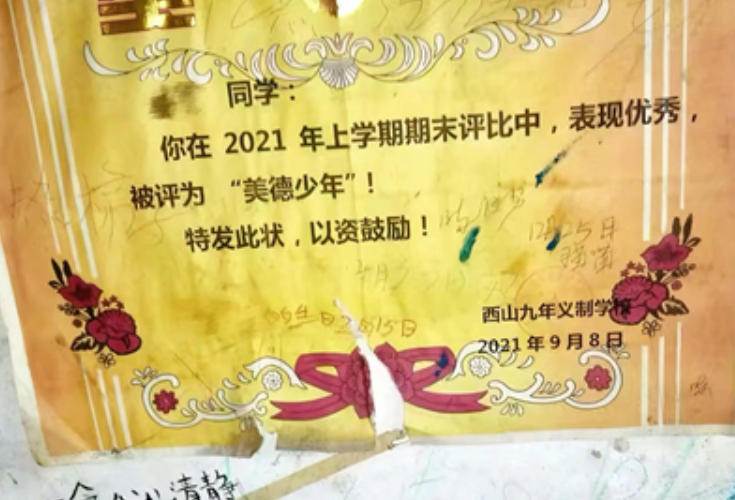 同学：
你在 2021 年上学期期末评比中，表现优秀，
被评为 “美德少年”！
特发此状，以资鼓励！
12月25日
西山九年义制学校
2021年9月8日
清静